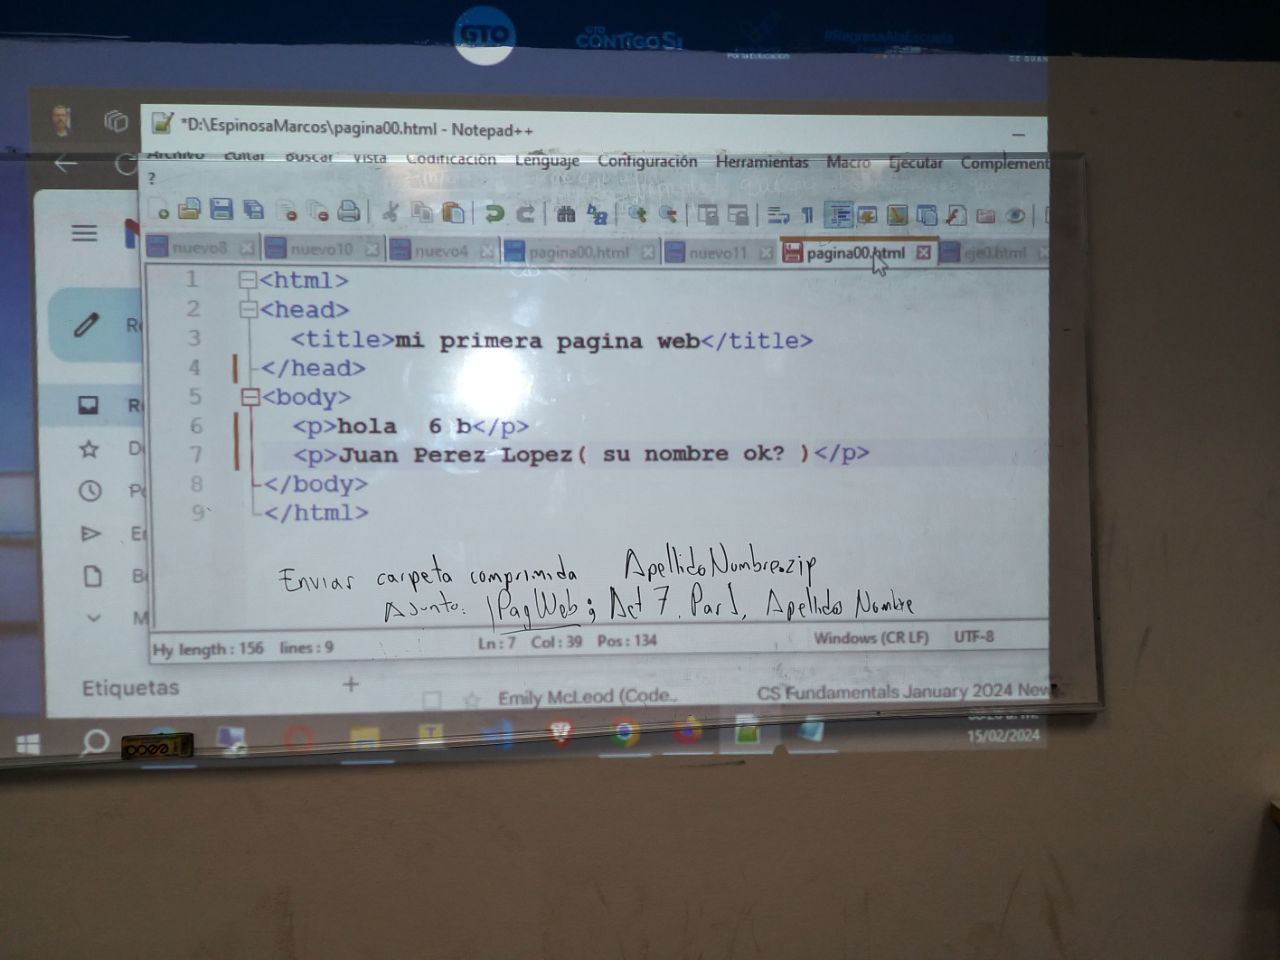 GTO
GTO
CONTIGO SÍ
#RegresaALaEscuela
*D:\EspinosaMarcos\pagina00.html - Notepad++
Archivo Editar Buscar Vista Codificación Lenguaje Configuración Herramientas Macro Ejecutar Complement
?
nuevo8 nuevo10 nuevo4 pagina00.html nuevo11 pagina00.html eje0.html
1 <html>
2 <head>
3 <title>mi primera pagina web</title>
4 </head>
5 <body>
6 <p>hola  6 b</p>
7 <p>Juan Perez Lopez( su nombre ok? )</p>
8 </body>
9 </html>
Enviar carpeta comprimida ApellidoNombre.zip
Asunto: 1PagWeb; Act 7. Par1, Apellido Nombre
Hy length : 156 lines : 9 Ln : 7 Col : 39 Pos : 134 Windows (CR LF) UTF-8
Etiquetas +
Emily McLeod (Code. CS Fundamentals January 2024 New
15/02/2024